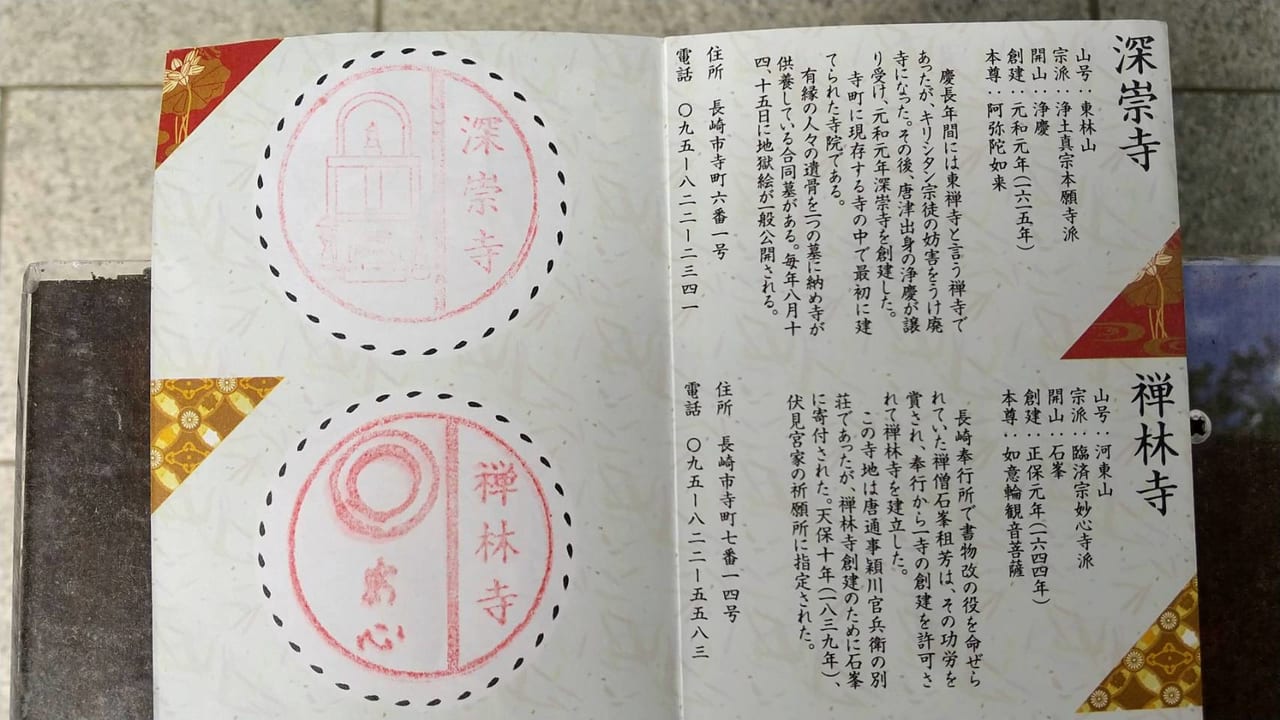 深崇寺
山号：東林山
宗派：浄土真宗本願寺派
開山：浄慶
創建：元和元年(一六一五年)
本尊：阿弥陀如来
慶長年間には東禅寺と言う禅寺で
あったが、キリシタン宗徒の妨害をうけ廃
寺になった。その後、唐津出身の浄慶が譲
り受け、元和元年深崇寺を創建した。
寺町に現存する寺の中で最初に建
てられた寺院である。
有縁の人々の遺骨を一つの墓に納め寺が
供養している合同墓がある。毎年八月十
四、十五日に地獄絵が一般公開される。
住所　長崎市寺町六番一号
電話　〇九五ー八二二ー二三四一
深崇寺
禅林寺
山号：河東山
宗派：臨済宗妙心寺派
開山：石峯
創建：正保元年(一六四四年)
本尊：如意輪観音菩薩
長崎奉行所で書物改の役を命ぜら
れていた禅僧石峯租芳は、その功労を
賞され、奉行から一寺の創建を許可さ
れて禅林寺を建立した。
この寺地は唐通事穎川官兵衛の別
荘であったが、禅林寺創建のために石峯
に寄付された。天保十年(一八三九年)、
伏見宮家の祈願所に指定された。
住所　長崎市寺町七番一四号
電話　〇九五ー八二二ー五五八三
禅林寺
安心